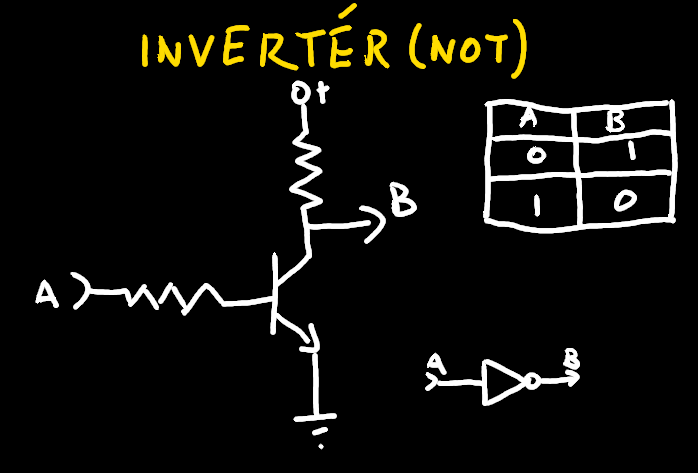 INVERTÉR (NOT)
0+
B
A
A B
0 1
1 0
A B